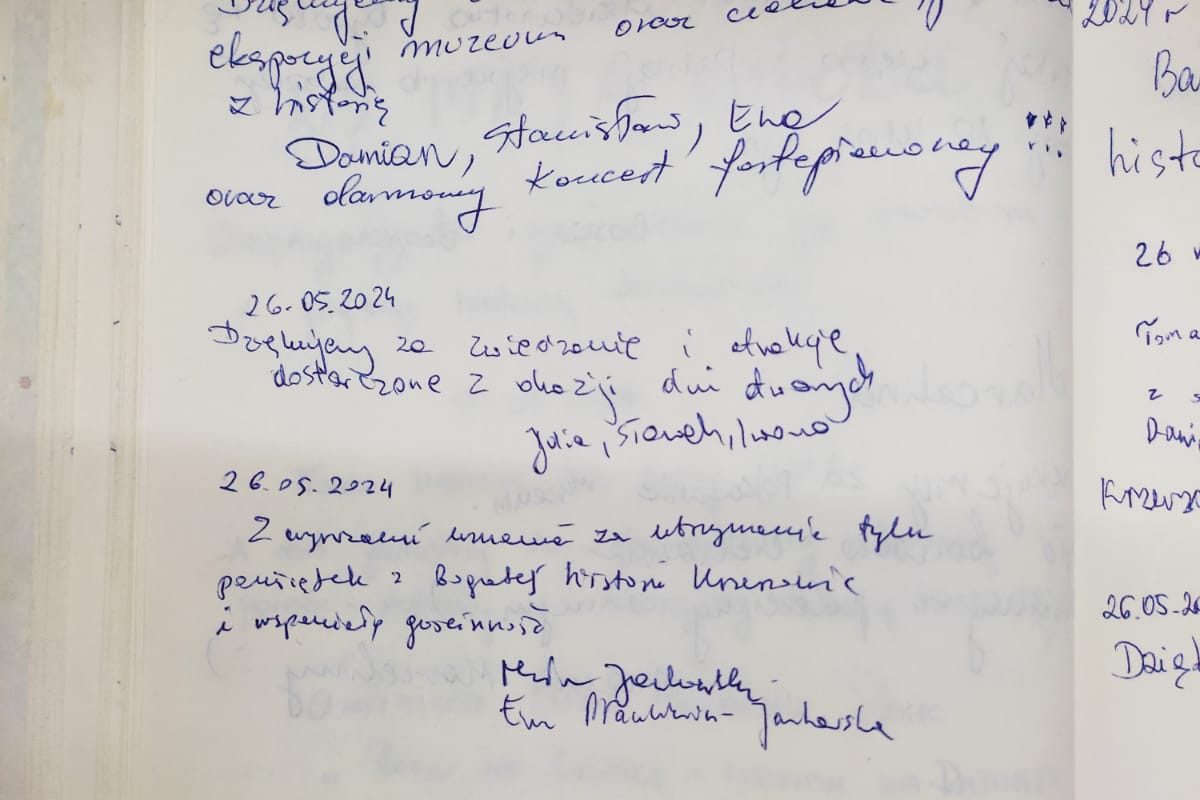 Dziękujemy
ekspozycji muzeum oraz
z historią
Damian, Stanisław, Ewa
oraz darmowy koncert fortepianowy !!!
26.05.2024
Dziękujemy za zwiedzanie i atrakcje
dostarczone z okazji dni
Julia, Sławek, Iwona
26.05.2024
Z wyrazami uznania za utrzymanie tylu
pamiątek z Bogatej historii Krzeszowic
i wspaniałą gościnność
Ewa
2024 r
Ba
histo
26
Toma
z
Dami
Krzesz
26.05.20
Dzięk